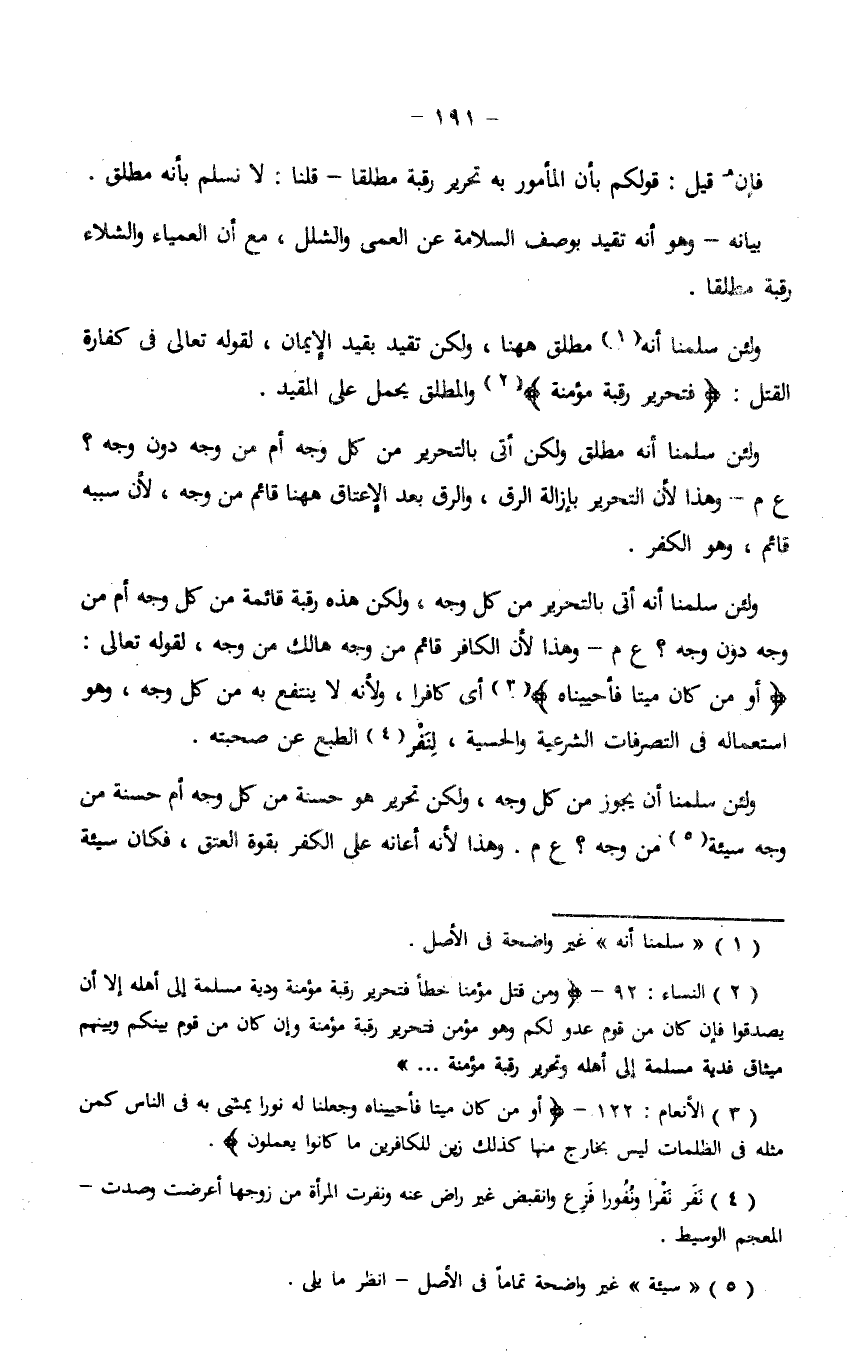 – ١٩١ –
فإن قيل : قولكم بأن المأمور به تحرير رقبة مطلقا – قلنا : لا نسلم بأنه مطلق .
بيانه – وهو أنه تقيد بوصف السلامة عن العمى والشلل ، مع أن العمياء والشلاء
رقبة مطلقا .
ولئن سلمنا أنه(١) مطلق ههنا ، ولكن تقيد بقيد الإيمان ، لقوله تعالى فى كفارة
القتل : ﴿ فتحرير رقبة مؤمنة ﴾(٢) والمطلق يحمل على المقيد .
ولئن سلمنا أنه مطلق ولكن أتى بالتحرير من كل وجه أم من وجه دون وجه ؟
ع م – وهذا لأن التحرير بإزالة الرق ، والرق بعد الإعتاق ههنا قائم من وجه ، لأن سببه
قائم ، وهو الكفر .
ولئن سلمنا أنه أتى بالتحرير من كل وجه ، ولكن هذه رقبة قائمة من كل وجه أم من
وجه دون وجه ؟ ع م – وهذا لأن الكافر قائم من وجه هالك من وجه ، لقوله تعالى :
﴿ أو من كان ميتا فأحييناه ﴾(٣) أى كافرا ، ولأنه لا ينتفع به من كل وجه ، وهو
استعماله فى التصرفات الشرعية والحسية ، لِنَفْر(٤) الطبع عن صحبته .
ولئن سلمنا أن يجوز من كل وجه ، ولكن تحرير هو حسنة من كل وجه أم حسنة من
وجه سيئة(٥) من وجه ؟ ع م . وهذا لأنه أعانه على الكفر بقوة العتق ، فكان سيئة
(١) « سلمنا أنه » غير واضحة فى الأصل .
(٢) النساء : ٩٢ – ﴿ ومن قتل مؤمنا خطأ فتحرير رقبة مؤمنة ودية مسلمة إلى أهله إلا أن
يصدقوا فإن كان من قوم عدو لكم وهو مؤمن فتحرير رقبة مؤمنة وإن كان من قوم بينكم وبينهم
ميثاق فدية مسلمة إلى أهله وتحرير رقبة مؤمنة ... »
(٣) الأنعام : ١٢٢ – ﴿ أو من كان ميتا فأحييناه وجعلنا له نورا يمشى به فى الناس كمن
مثله فى الظلمات ليس بخارج منها كذلك زين للكافرين ما كانوا يعملون ﴾ .
(٤) نَفَر نَفْرا ونُفُورا فَزِع وانقبض غير راض عنه ونفرت المرأة من زوجها أعرضت وصدت –
المعجم الوسيط .
(٥) « سيئة » غير واضحة تماماً فى الأصل – انظر ما يلى .